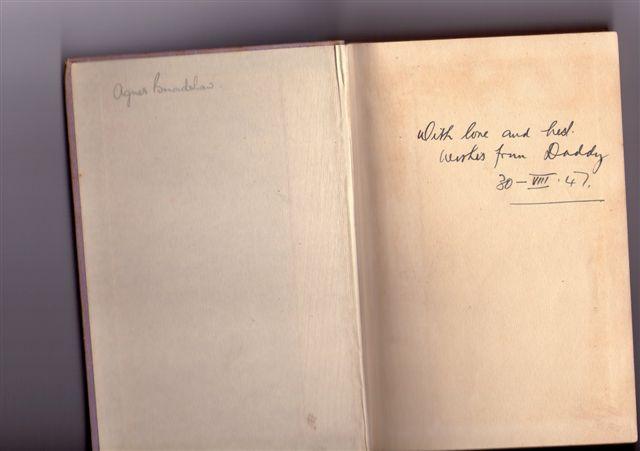 Agnes Bradshaw.
With love and best
wishes from Daddy
30-VIII.47.